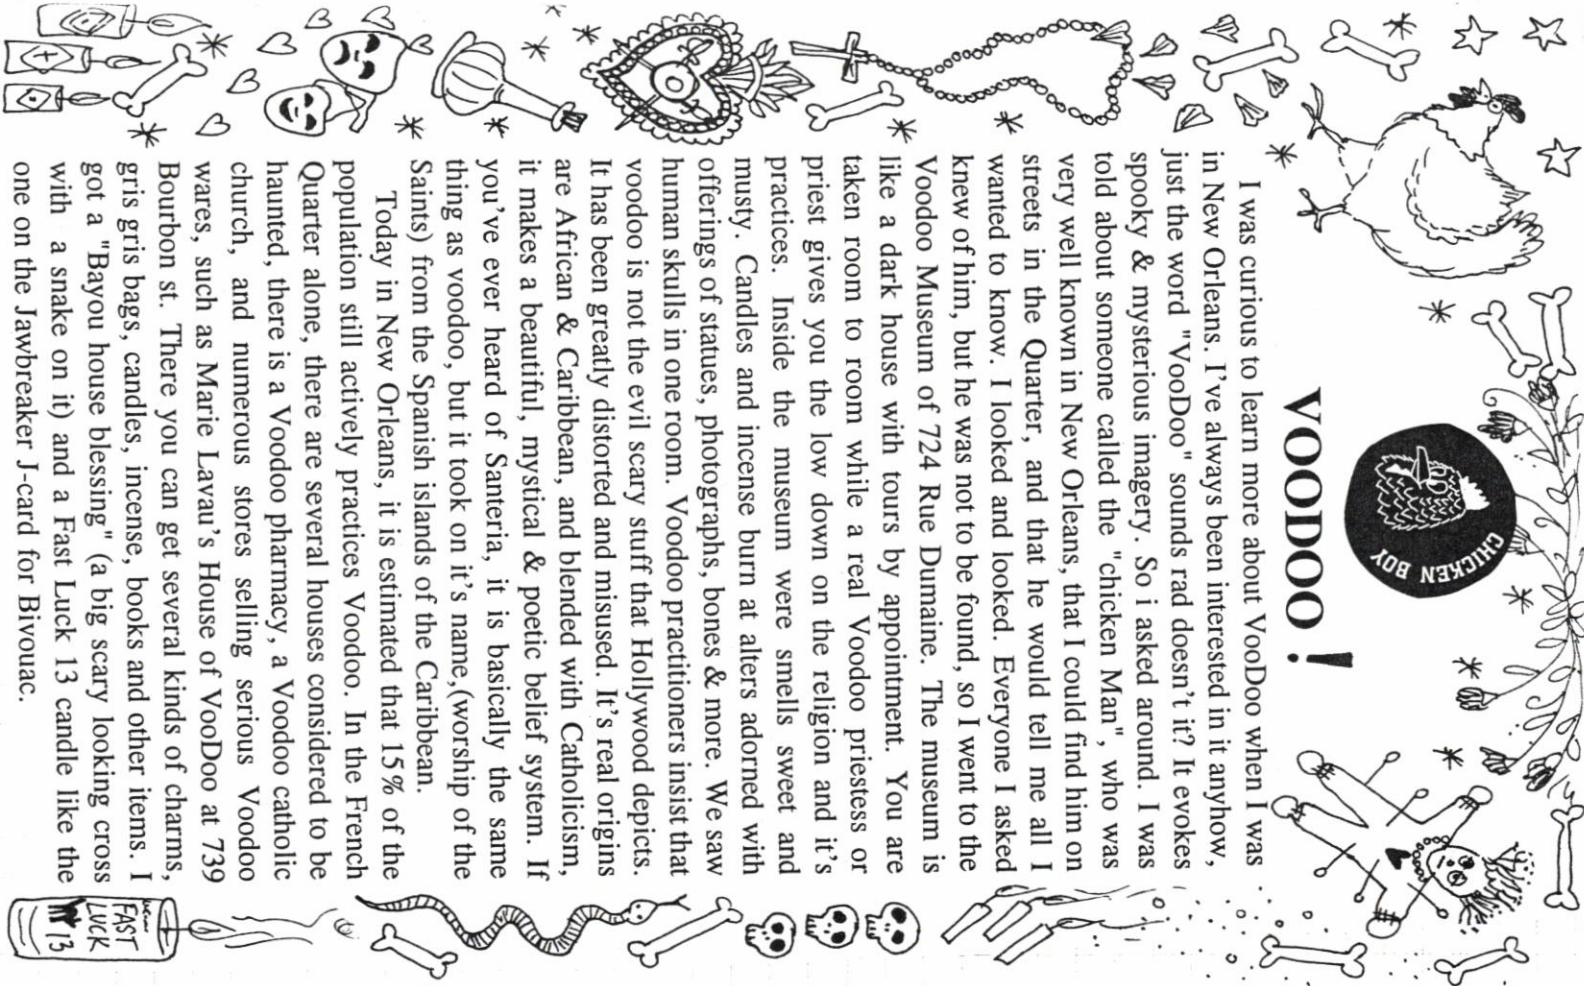 CHICKEN BOY
VOODOO !
I was curious to learn more about VooDoo when I was
in New Orleans. I've always been interested in it anyhow,
just the word "VooDoo" sounds rad doesn't it? It evokes
spooky & mysterious imagery. So i asked around. I was
told about someone called the "chicken Man", who was
very well known in New Orleans, that I could find him on
streets in the Quarter, and that he would tell me all I
wanted to know. I looked and looked. Everyone I asked
knew of him, but he was not to be found, so I went to the
Voodoo Museum of 724 Rue Dumaine. The museum is
like a dark house with tours by appointment. You are
taken room to room while a real Voodoo priestess or
priest gives you the low down on the religion and it's
practices. Inside the museum were smells sweet and
musty. Candles and incense burn at alters adorned with
offerings of statues, photographs, bones & more. We saw
human skulls in one room. Voodoo practitioners insist that
voodoo is not the evil scary stuff that Hollywood depicts.
It has been greatly distorted and misused. It's real origins
are African & Caribbean, and blended with Catholicism,
it makes a beautiful, mystical & poetic belief system. If
you've ever heard of Santeria, it is basically the same
thing as voodoo, but it took on it's name,(worship of the
Saints) from the Spanish islands of the Caribbean.
Today in New Orleans, it is estimated that 15% of the
population still actively practices Voodoo. In the French
Quarter alone, there are several houses considered to be
haunted, there is a Voodoo pharmacy, a Voodoo catholic
church, and numerous stores selling serious Voodoo
wares, such as Marie Lavau's House of VooDoo at 739
Bourbon st. There you can get several kinds of charms,
gris gris bags, candles, incense, books and other items. I
got a "Bayou house blessing" (a big scary looking cross
with a snake on it) and a Fast Luck 13 candle like the
one on the Jawbreaker J-card for Bivouac.
FAST
LUCK
13